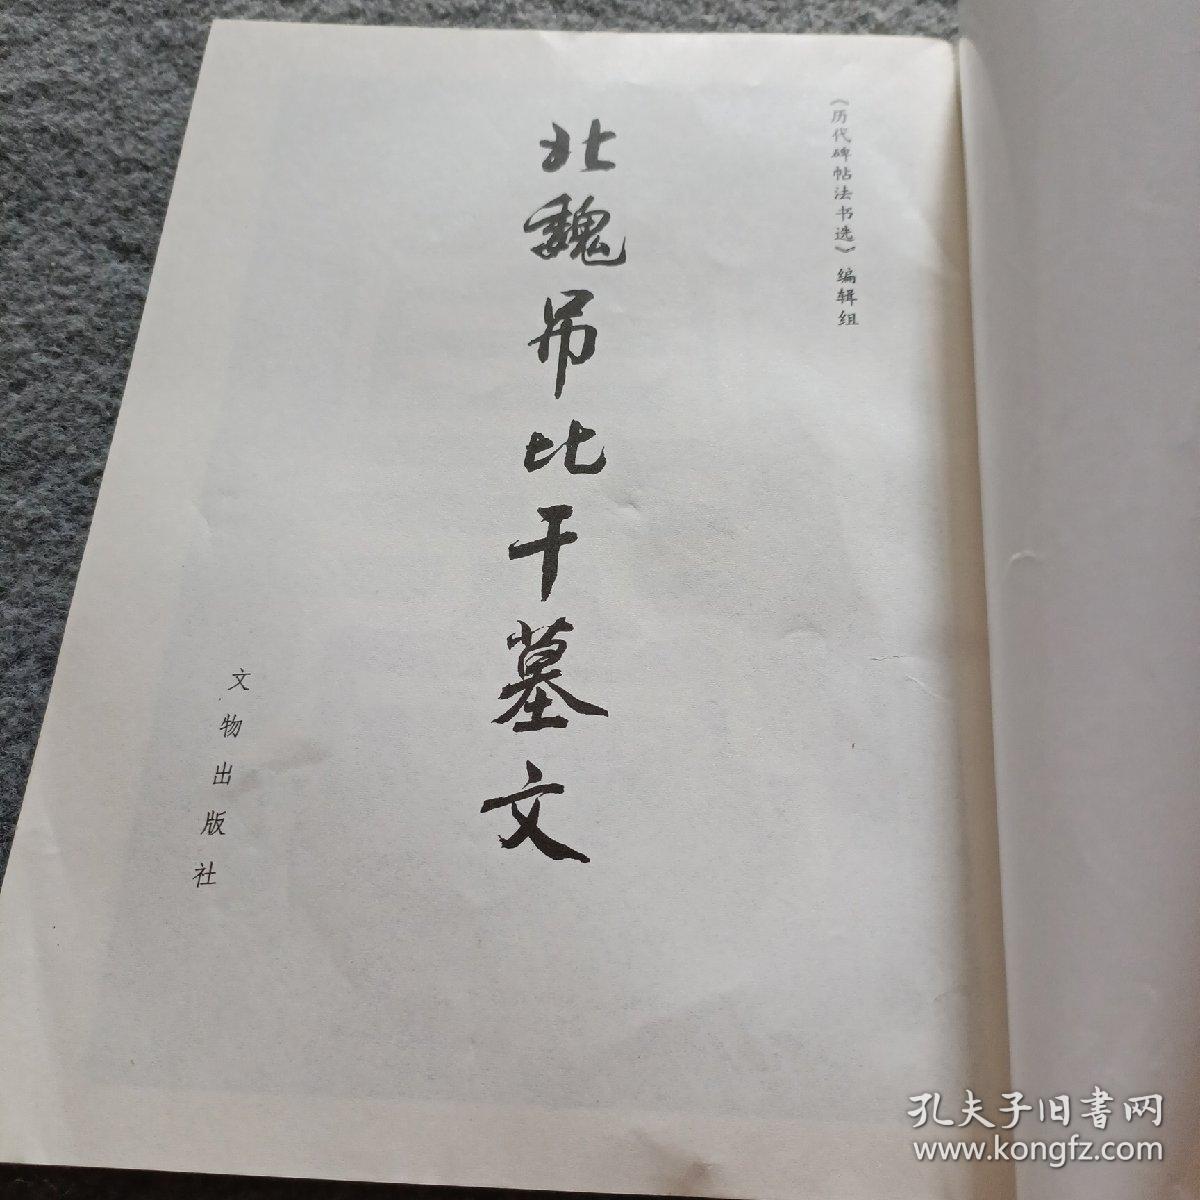 《历代碑帖法书选》编辑组
北魏吊比干墓文
文物出版社
孔夫子旧书网
www.kongfz.com